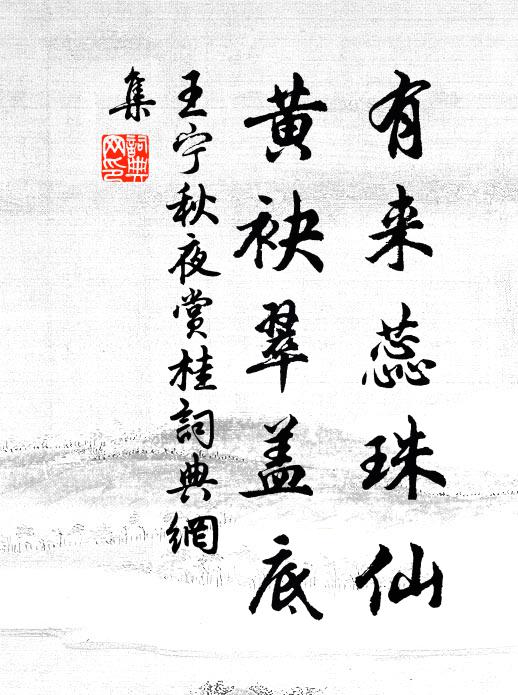 有来蕊珠仙
黄袂翠盖底
王宁秋夜赏桂詞典網
集
詞典
网印